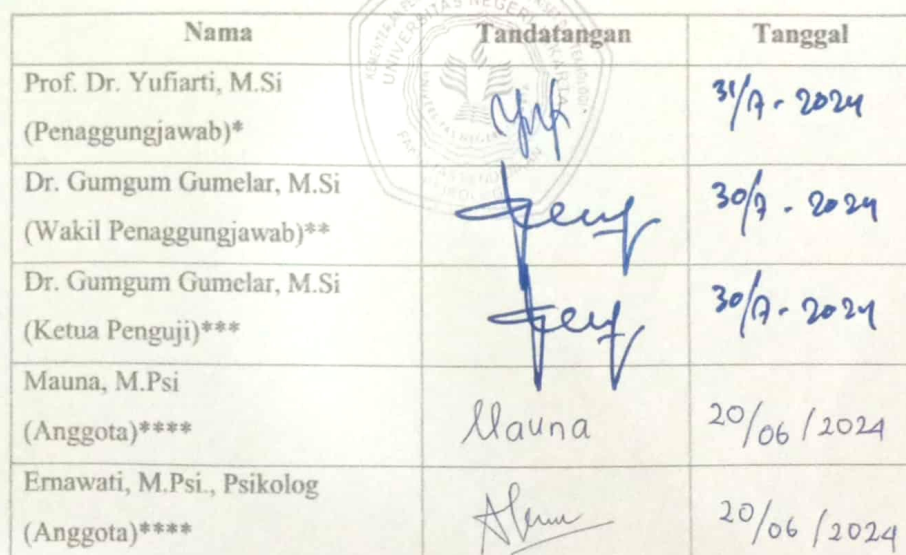 Nama Tandatangan Tanggal
Prof. Dr. Yufiarti, M.Si
(Penaggungjawab)*
31/7 - 2024
Dr. Gumgum Gumelar, M.Si
(Wakil Penaggungjawab)**
30/7 - 2024
Dr. Gumgum Gumelar, M.Si
(Ketua Penguji)***
30/7 - 2024
Mauna, M.Psi
(Anggota)****
Mauna 20/06/2024
Ernawati, M.Psi., Psikolog
(Anggota)****
20/06/2024
UNIVERSITAS NEGERI